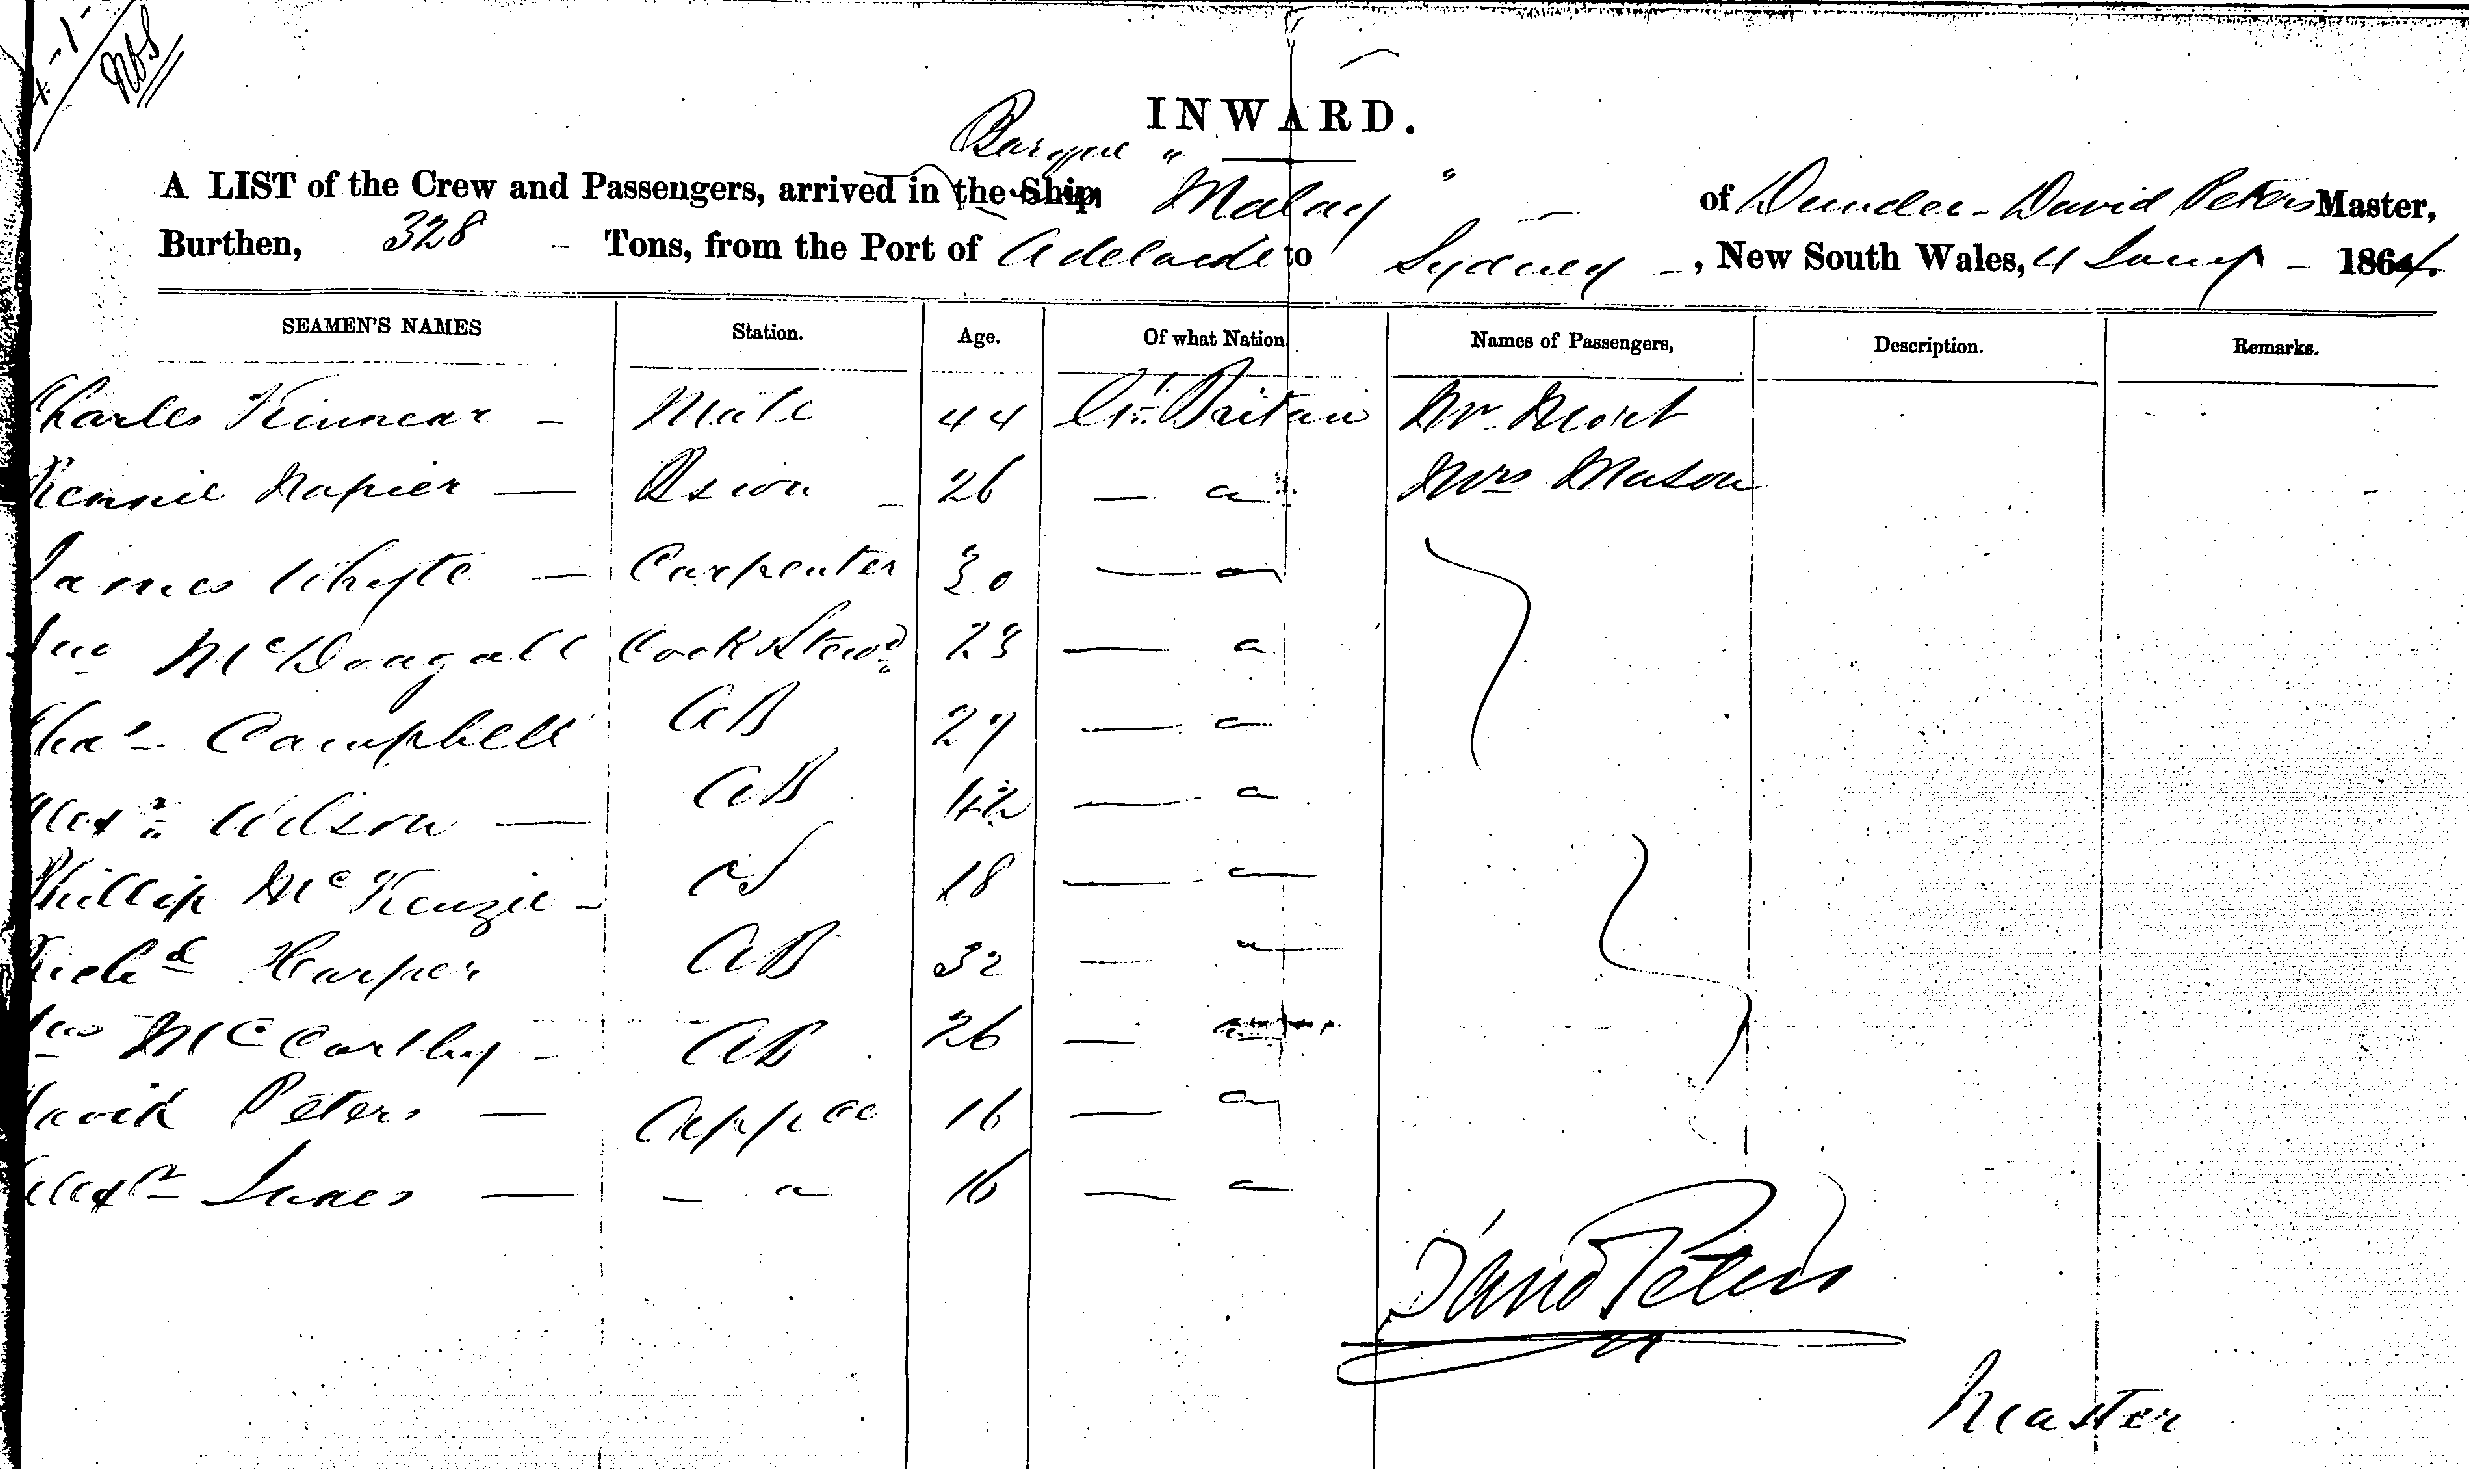 INWARD.
Barque "
A LIST of the Crew and Passengers, arrived in the Ship Malay " of Dundee - David Peters Master,
Burthen, 328 - Tons, from the Port of Adelaide to Sydney -, New South Wales, 4 Jany - 1864.
SEAMEN'S NAMES Station. Age. Of what Nation. Names of Passengers, Description. Remarks.
Charles Kinnear - Mate 44 Gt. Britain Mr. Mort
Rennie Napier — 26 — " Mrs Mason
James Whyte — Carpenter 30 — "
Jno McDougall Cook & Stewd 23 — "
Chas Campbell AB 27 — "
Alexr Wilson — AB 42 — "
Phillip McKenzie - OS 18 — "
Richd Harper AB 32 — "
Jno McCarthy - AB 26 — "
David Peters — Appce 16 — "
Alexr Innes — - " 16 — "
David Peters
Master